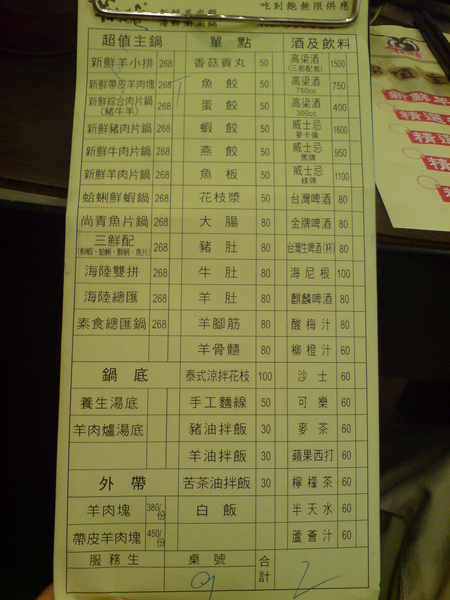 吃到飽無限供應
超值主鍋 單點 酒及飲料
新鮮羊小排 268 香菇貢丸 50 高梁酒(三節配售) 1500
新鮮帶皮羊肉塊 268 魚餃 50 高梁酒750cc 750
新鮮綜合肉片鍋(豬牛羊) 268 蛋餃 50 高梁酒300cc 400
新鮮豬肉片鍋 268 蝦餃 50 威士忌麥卡倫 1600
新鮮牛肉片鍋 268 燕餃 50 威士忌黑牌 950
新鮮羊肉片鍋 268 魚板 50 威士忌綠牌 1100
蛤蜊鮮蝦鍋 268 花枝漿 50 台灣啤酒 80
尚青魚片鍋 268 大腸 80 金牌啤酒 80
三鮮配 268 豬肚 80 台灣生啤酒(杯) 80
海陸雙拼 268 牛肚 80 海尼根 100
海陸總匯 268 羊肚 80 麒麟啤酒 80
素食總匯鍋 268 羊腳筋 80 酸梅汁 60
羊骨髓 80 柳橙汁 60
鍋底 泰式涼拌花枝 100 沙士 60
養生湯底 手工麵線 50 可樂 60
羊肉爐湯底 豬油拌飯 30 麥茶 60
羊油拌飯 30 蘋果西打 60
外帶 苦茶油拌飯 30 檸檬茶 60
羊肉塊 380/份 白飯 半天水 60
帶皮羊肉塊 450/份 蘆薈汁 60
服務生 桌號 9 合計
新鮮羊
精選
精